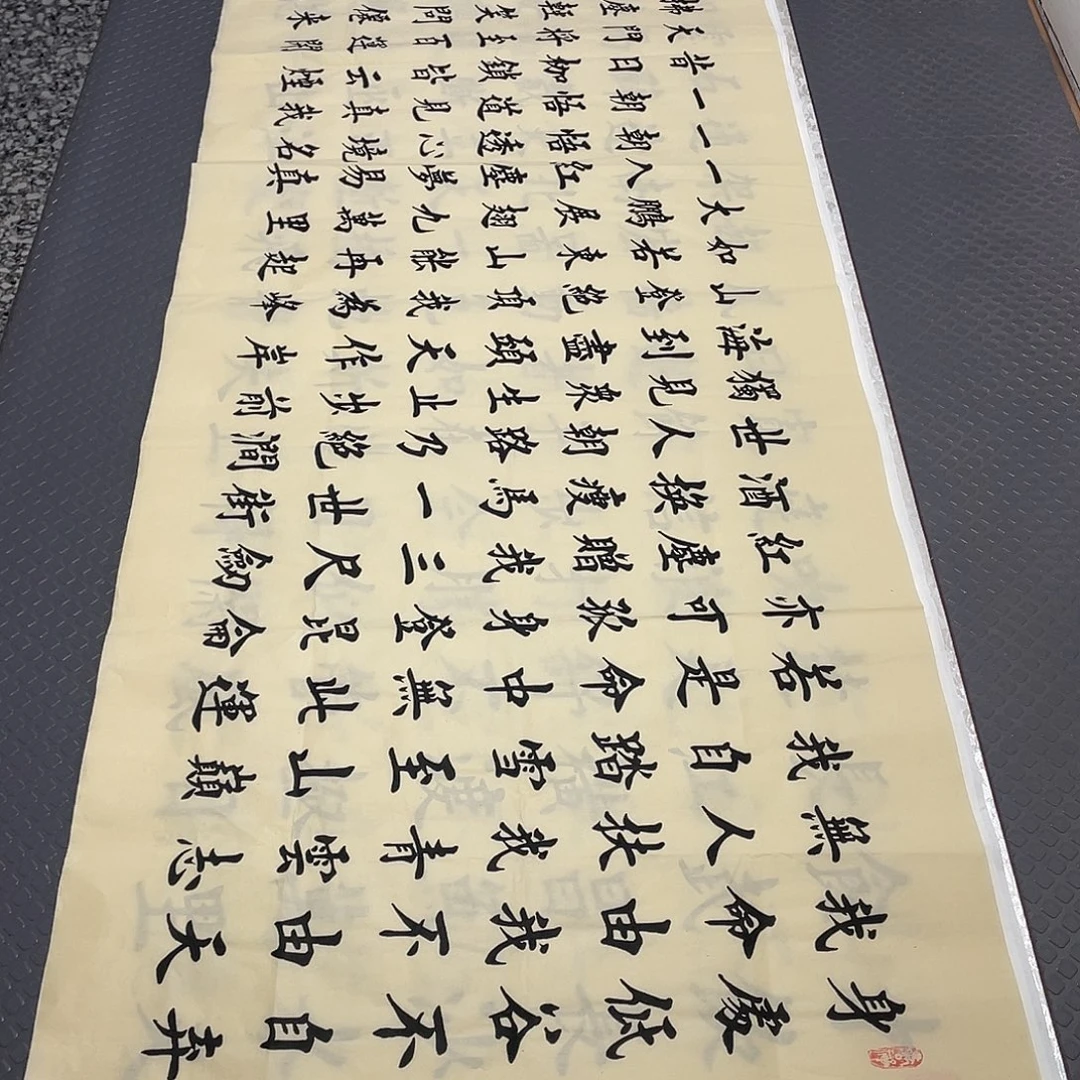 身處低谷不自弃
我命由我不由天
無人扶我青雲志
我自踏雪至山巔
若是命中無此運
亦可孤身登昆侖
紅塵贈我三尺劍
酒換瘦馬一世街
世人朝路乃絕澗
獨見衆生止步前
海到盡頭天作岸
山登絕頂我為峰
如若東山能再起
大鵬展翅九萬里
一入紅塵夢易真
一朝悟透心境名
一朝悟道見真我
昔日枷鎖皆云煙
天門將至百蓮開
拂塵輕笑問來